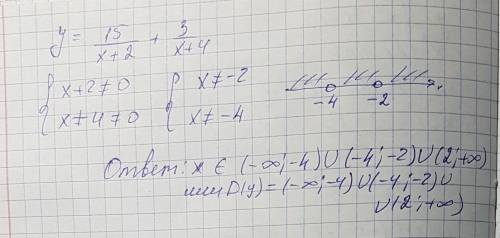 y = 15/(x+2) + 3/(x+4)
{ x+2≠0 { x≠-2
{ x≠4≠0 { x≠-4
-4 -2 x
Ответ: x ∈ (-∞; -4) ∪ (-4; -2) ∪ (2; +∞)
или D(y) = (-∞; -4) ∪ (-4; -2) ∪
∪ (2; +∞)